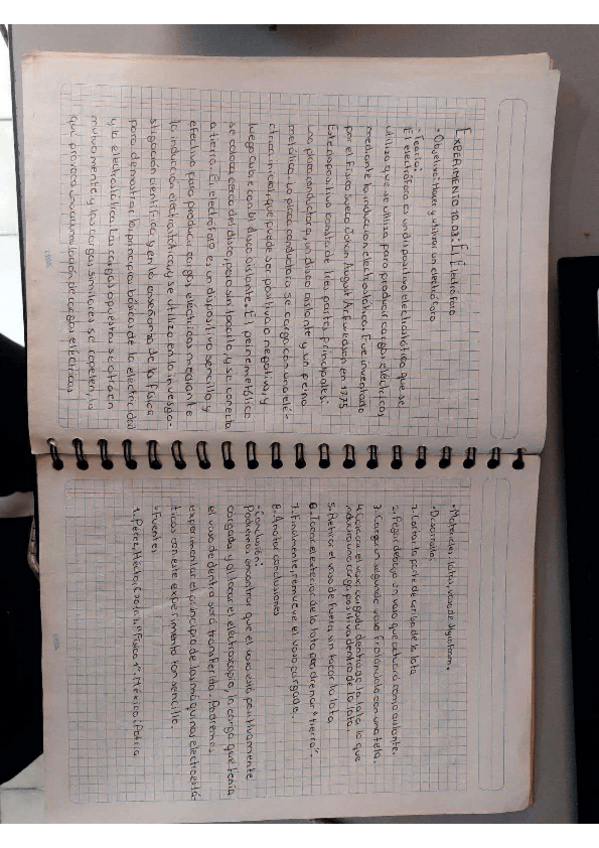 EXPERIMENTO 10.03: El Electróforo
• Objetivo: Hacer y utilizar un electróforo
• Teoría:
El electróforo es un dispositivo electrostático que se
utiliza que se utiliza para producir cargas eléctricas
mediante la inducción electrostática. Fue inventado
por el físico sueco Johan August Arfwedson en 1775
Este dispositivo consta de tres partes principales:
una placa conductora, un disco aislante y un peine
metálico. La placa conductora se carga con una elé-
ctrica inicial, que puede ser positiva o negativa, y
luego se con el disco aislante. El peine metálico
se coloca cerca del disco, pero sin tocarlo, y se conecta
a tierra. El electróforo es un dispositivo sencillo y
efectivo para producir cargas eléctricas mediante
la inducción electrostática y se utiliza en la inves-
stigación científica y en la enseñanza de la física
para demostrar los principios básicos de la electricidad
y la electrostática. Las cargas opuestas se atraen
mutuamente y las cargas similares se repelen, lo
que provoca una acumulación de cargas eléctricas
• Materiales: latas, vasos de styrofoam.
• Desarrollo:
1. Cortar la parte de arriba de la lata
2. Pegar debajo un vaso que actuará como aislante.
3. Cargar un segundo vaso frotándolo con una tela.
4. Colocar el vaso cargado dentro de la lata lo que
inducirá una carga positiva dentro de la lata.
5. Retirar el vaso de fuera, sin tocar la lata
6. Tocar el exterior de la lata para drenar a tierra.
7. Finalmente, remueve el vaso cargado.
8. Anotar conclusiones
• Conclusión:
Podremos encontrar que el vaso está positivamente
cargado y al tocar el electroscopio, la carga que tenía
el vaso de dentro será transferida. Podremos
experimentar el principio de las máquinas electrostá-
ticas con este experimento tan sencillo.
• Fuentes:
1. Pérez, Héctor, "Física 1". México: Patria